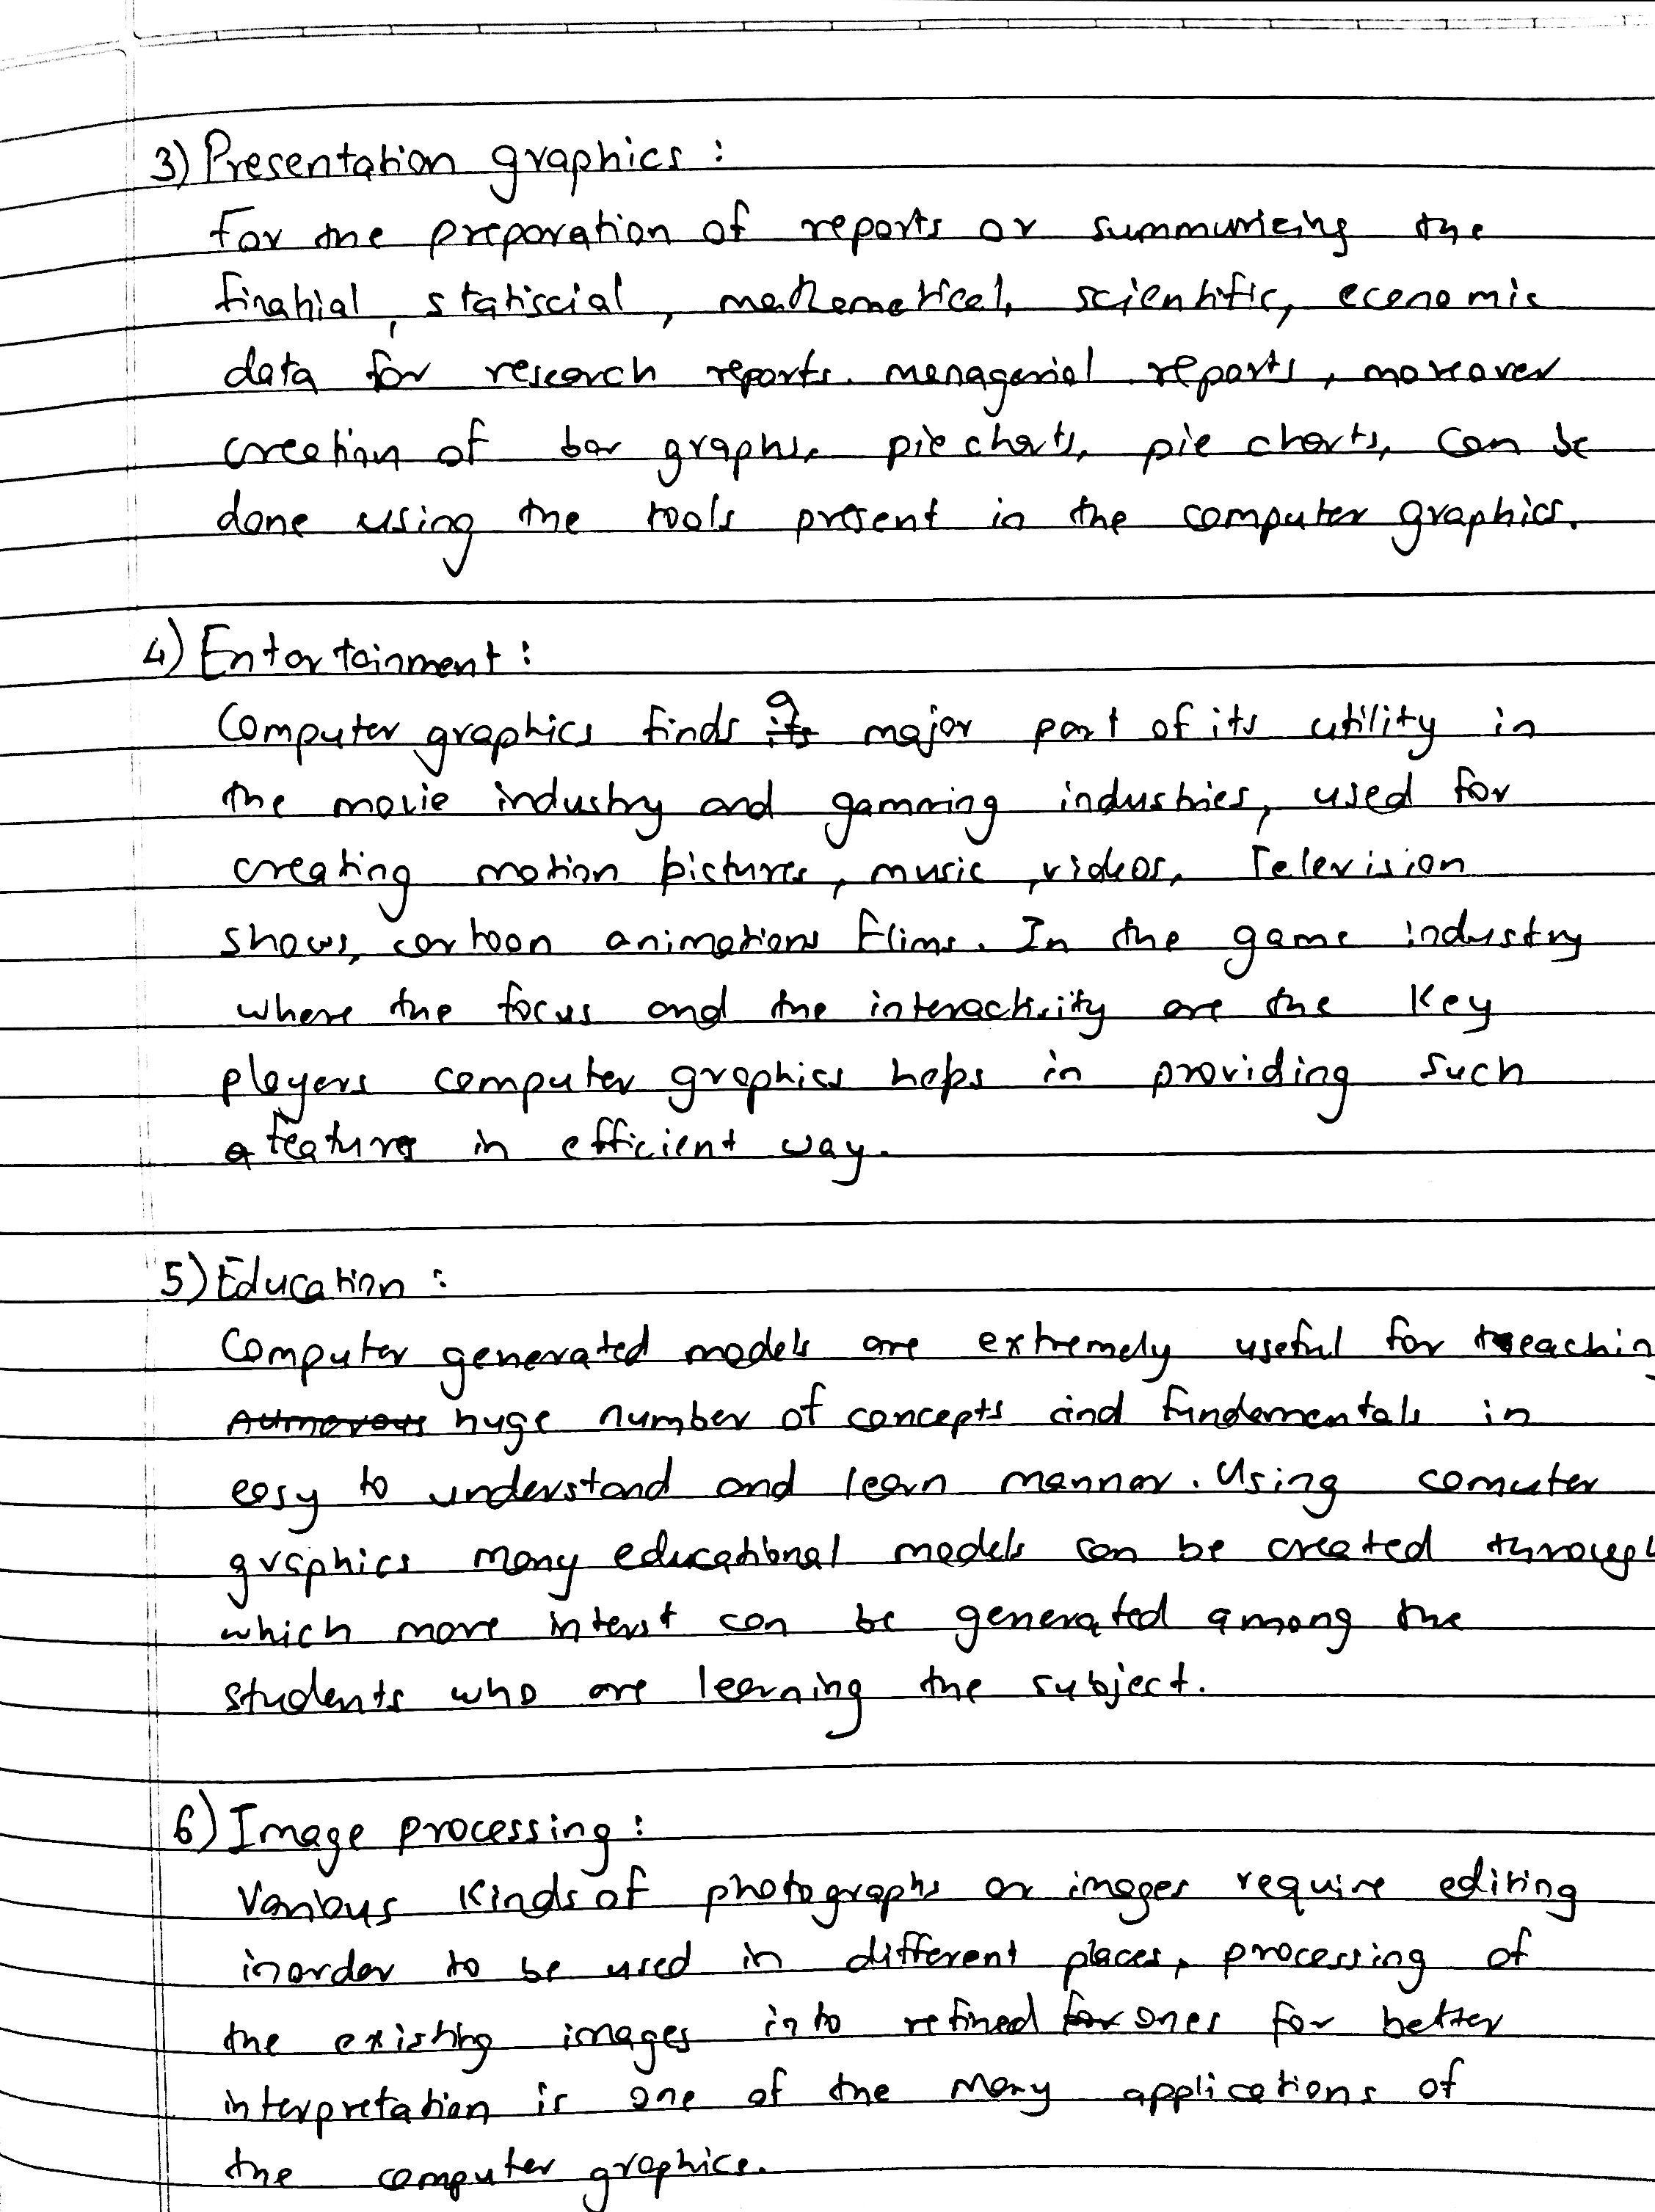 3) Presentation graphics :
For the preparation of reports or summurizing the
finahial, statiscial, mathematical, scientific, economic
data for research reports. managerial reports, moreover
creation of bar graphs, pie charts, pie charts, can be
done using the tools present in the computer graphics.
4) Entortainment :
Computer graphics finds a major part of its utility in
the movie industry and gamming industries, used for
creating motion pictures, music, videos, Television
shows, cartoon animations flims. In the game industry
where the focus and the interactivity are the key
players computer graphics heps in providing such
a feature in efficient way.
5) Education :
Computer generated models are extremely useful for teachin
huge number of concepts and fundamentals in
easy to understand and learn mannar. Using comuter
graphics many educational models can be created through
which more interst can be generated among the
students who are learning the subject.
6) Image processing :
Various kinds of photographs or images require editing
inorder to be used in different places, processing of
the existing images into refined ones for better
interpretation is one of the many applications of
the computer graphics.